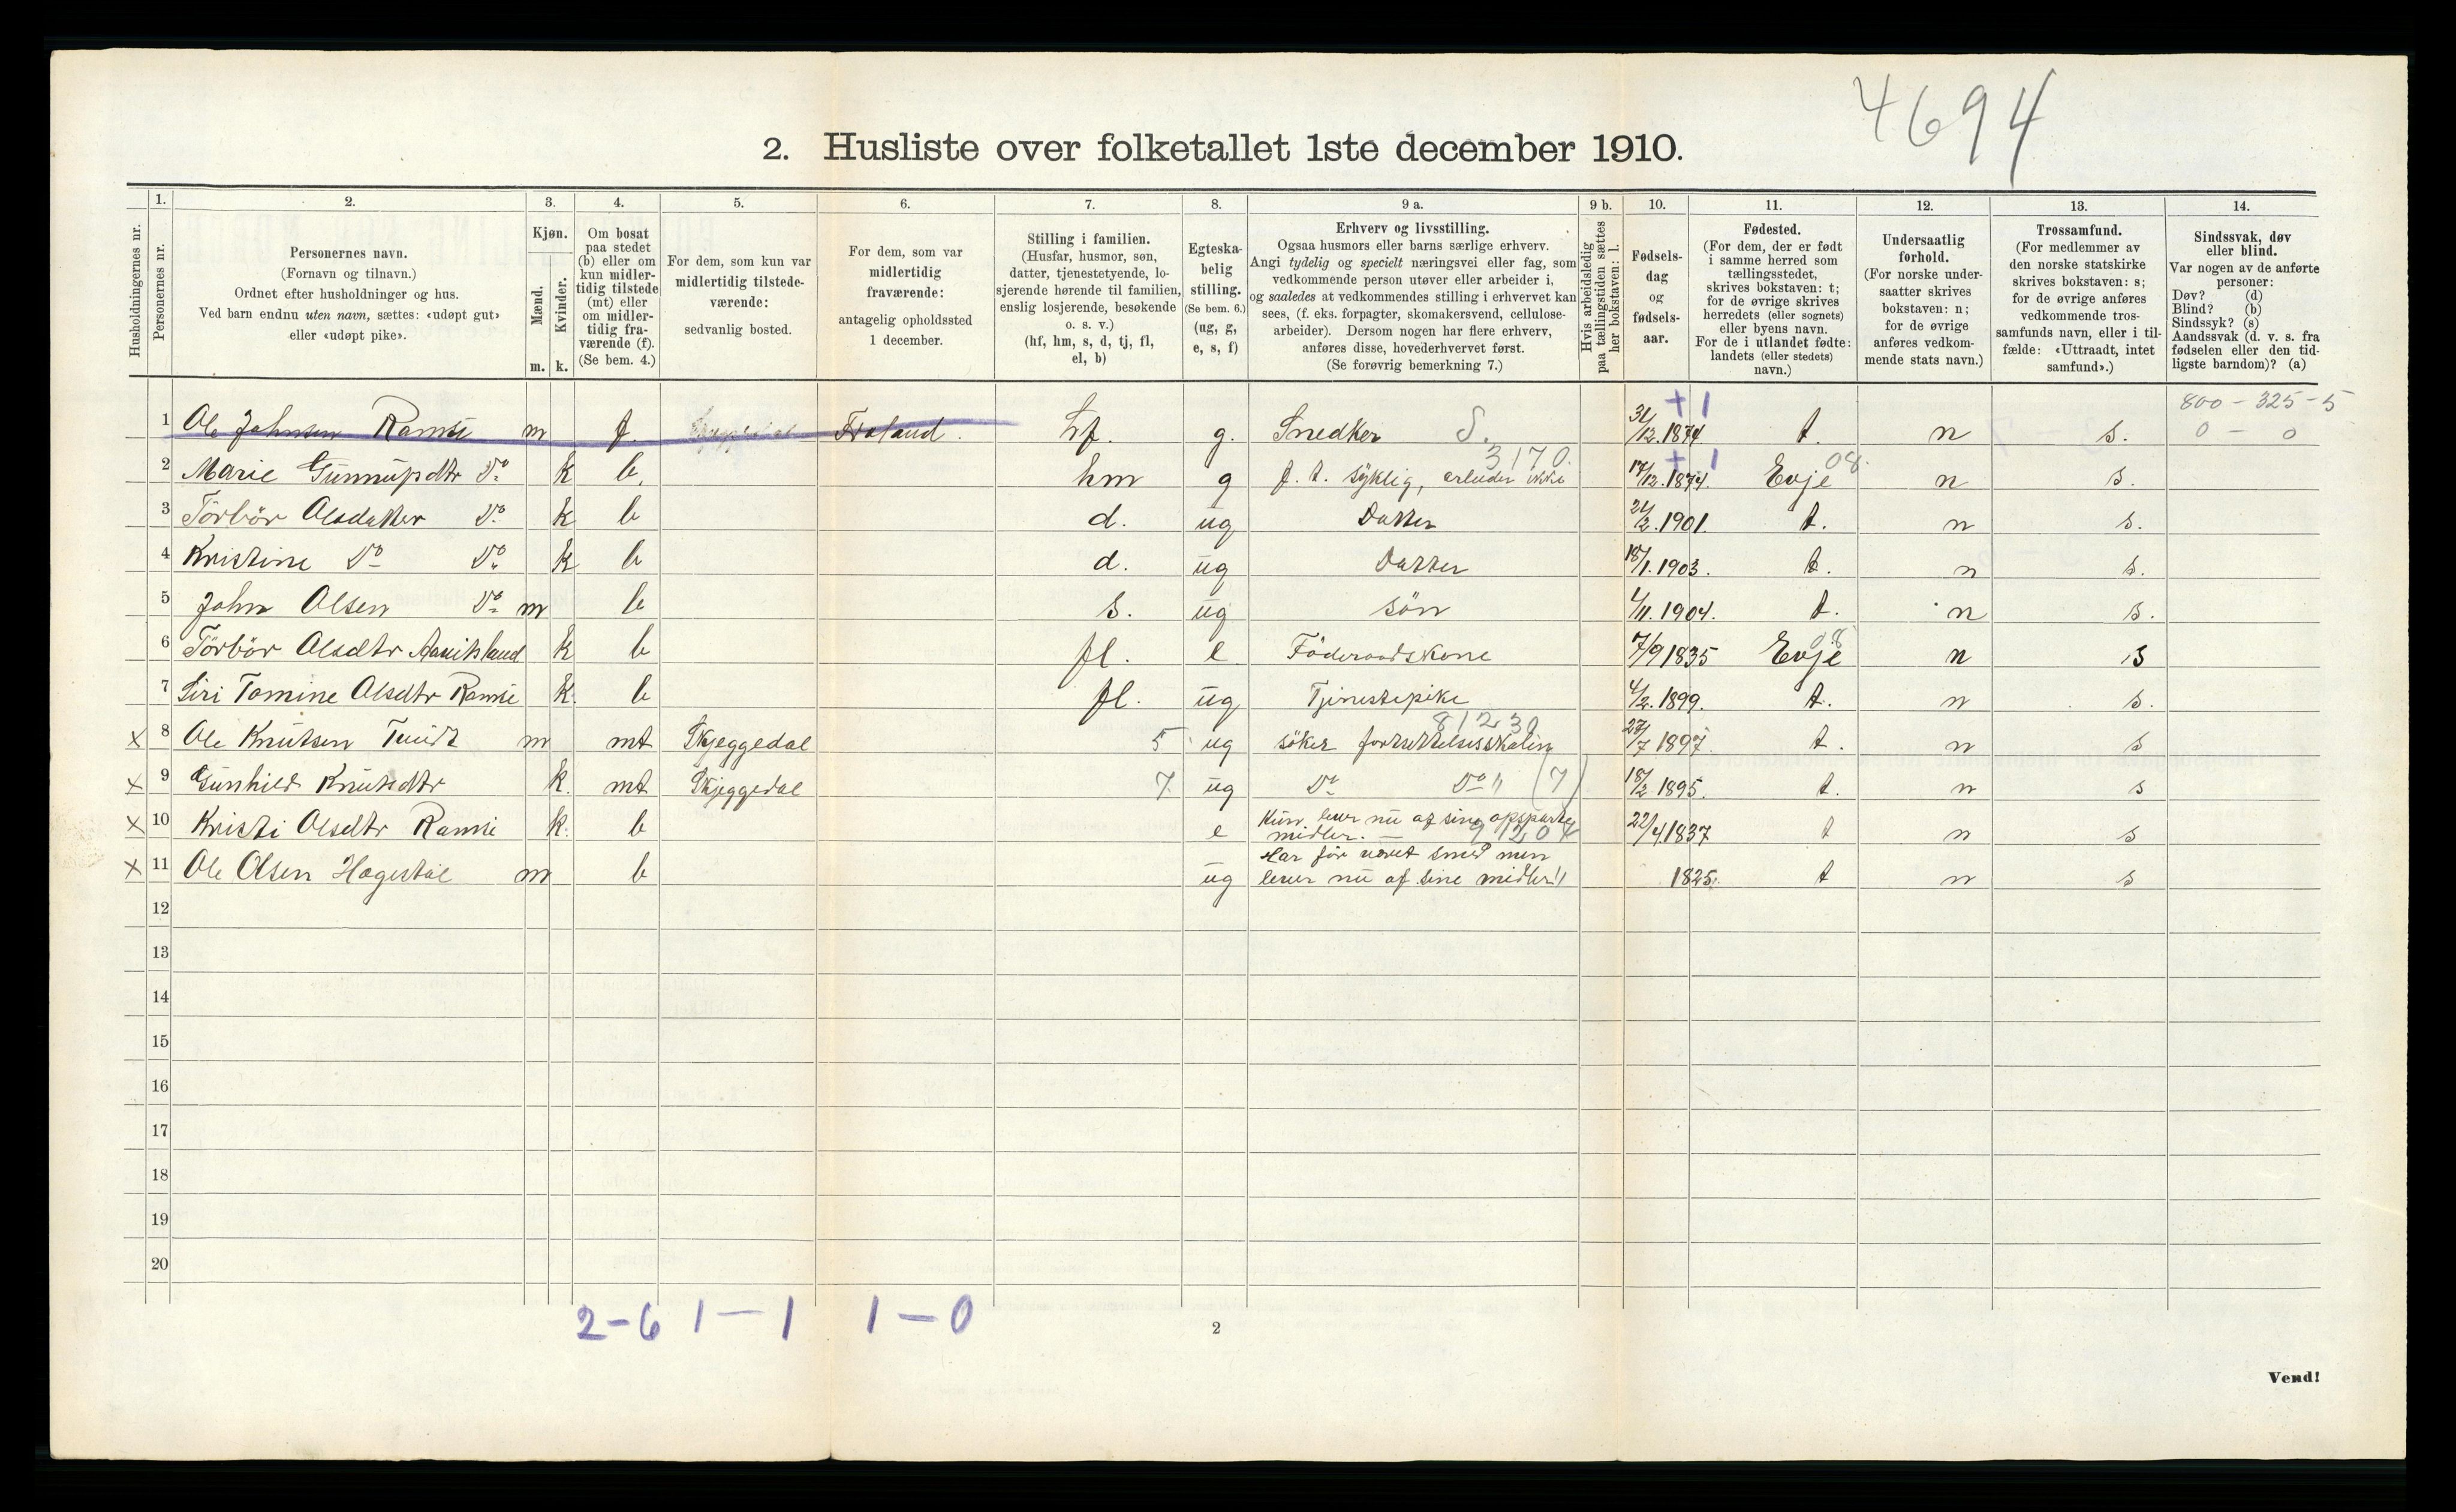 4694
2. Husliste over folketallet 1ste december 1910.
Husholdningernes nr.
1.
Personernes nr.
2.
Personernes navn.
(Fornavn og tilnavn.)
Ordnet efter husholdninger og hus.
Ved barn endnu uten navn, sættes: «udøpt gut»
eller «udøpt pike».
3.
Kjøn.
Mænd.
Kvinder.
m. k.
4.
Om bosat
paa stedet
(b) eller om
kun midler-
tidig tilstede
(mt) eller
om midler-
tidig fra-
værende (f).
(Se bem. 4.)
5.
For dem, som kun var
midlertidig tilstede-
værende:
sedvanlig bosted.
6.
For dem, som var
midlertidig
fraværende:
antagelig opholdssted
1 december.
7.
Stilling i familien.
(Husfar, husmor, søn,
datter, tjenestetyende, lo-
sjerende hørende til familien,
enslig losjerende, besøkende
o. s. v.)
(hf, hm, s, d, tj, fl,
el, b)
8.
Egteska-
belig
stilling.
(Se bem. 6.)
(ug, g,
e, s, f)
9 a.
Erhverv og livsstilling.
Ogsaa husmors eller barns særlige erhverv.
Angi tydelig og specielt næringsvei eller fag, som
vedkommende person utøver eller arbeider i,
og saaledes at vedkommendes stilling i erhvervet kan
sees, (f. eks. forpagter, skomakersvend, cellulose-
arbeider). Dersom nogen har flere erhverv,
anføres disse, hovederhvervet først.
(Se forøvrig bemerkning 7.)
9 b.
Hvis arbeidsledig
paa tællingstiden sættes
her bokstaven: l.
10.
Fødsels-
dag
og
fødsels-
aar.
11.
Fødested.
(For dem, der er født
i samme herred som
tællingsstedet,
skrives bokstaven: t;
for de øvrige skrives
herredets (eller sognets)
eller byens navn.
For de i utlandet fødte:
landets (eller stedets)
navn.)
12.
Undersaatlig
forhold.
(For norske under-
saatter skrives
bokstaven: n;
for de øvrige
anføres vedkom-
mende stats navn.)
13.
Trossamfund.
(For medlemmer av
den norske statskirke
skrives bokstaven: s;
for de øvrige anføres
vedkommende tros-
samfunds navn, eller i til-
fælde: «Uttraadt, intet
samfund».)
14.
Sindssvak, døv
eller blind.
Var nogen av de anførte
personer:
Døv? (d)
Blind? (b)
Sindssyk? (s)
Aandssvak (d. v. s. fra
fødselen eller den tid-
ligste barndom)? (a)
+ 1 800 - 325 - 5
1 Ole Johnsen Ramse m f. Froland. hf. g. Snedker S. 31/12.1874 t. n s. 0 - 0
3170. + 1 08.
2 Marie Gunnupdtr Do k b. hm g f. t. syklig, ikke 17/12.1874. Evje n s.
3 Törbör Olsdatter Do k b d. ug Datter 2/2.1901. t. n s.
4 Kristine Do Do k b d. ug Datter 18/1.1903. t. n s.
5 John Olsen Do m b s. ug sön 4/11.1904. t. n s.
6 Törbör Olsdtr k b fl. e Föderaadskone 7/9 1835 Evje 08 n s
7 Siri Tomine Olsdtr Ramse k. b fl. ug Tjenestepike 4/2.1899. t. n s.
81230
x 8 Ole Knutsen m mt Skjeggedal 5 ug söker 27/7 1897. t. n s
x 9 Gunhild Knutsdtr k. mt Skjeggedal 7. ug Do Do " (7) 18/2 1895. t. n s
x 10 Kristi Olsdtr Ramse k. b e Kun lever nu af sine opsparte
midler. — 91204 22/4.1837 t n s
x 11 Ole Olsen m b ug Har för været smed men
lever nu af sine midler " 1825. t n s
12
13
14
15
16
17
18
19
20
2-6 1-1 1-0
2
Vend!